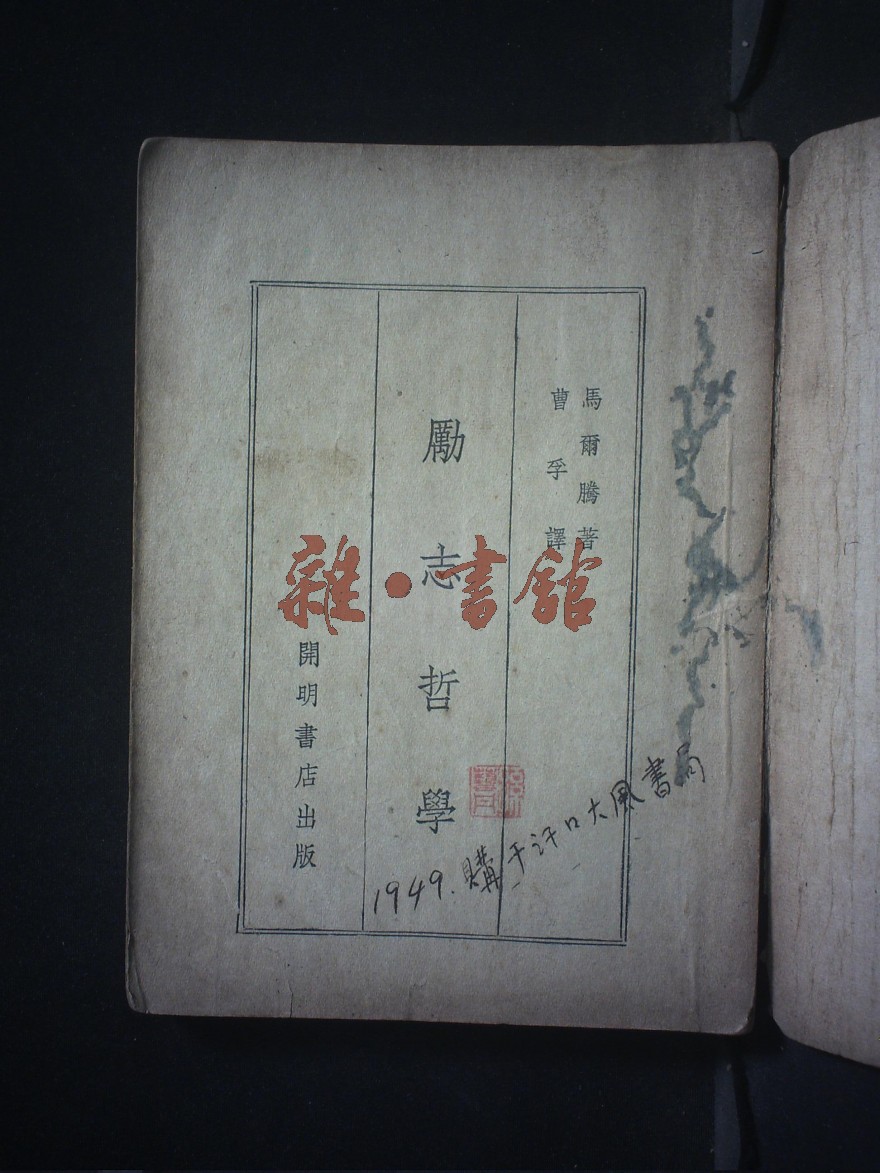 馬爾騰著
曹孚譯
勵志哲學
開明書店出版
雜·書館
1949.購于汉口大风書局